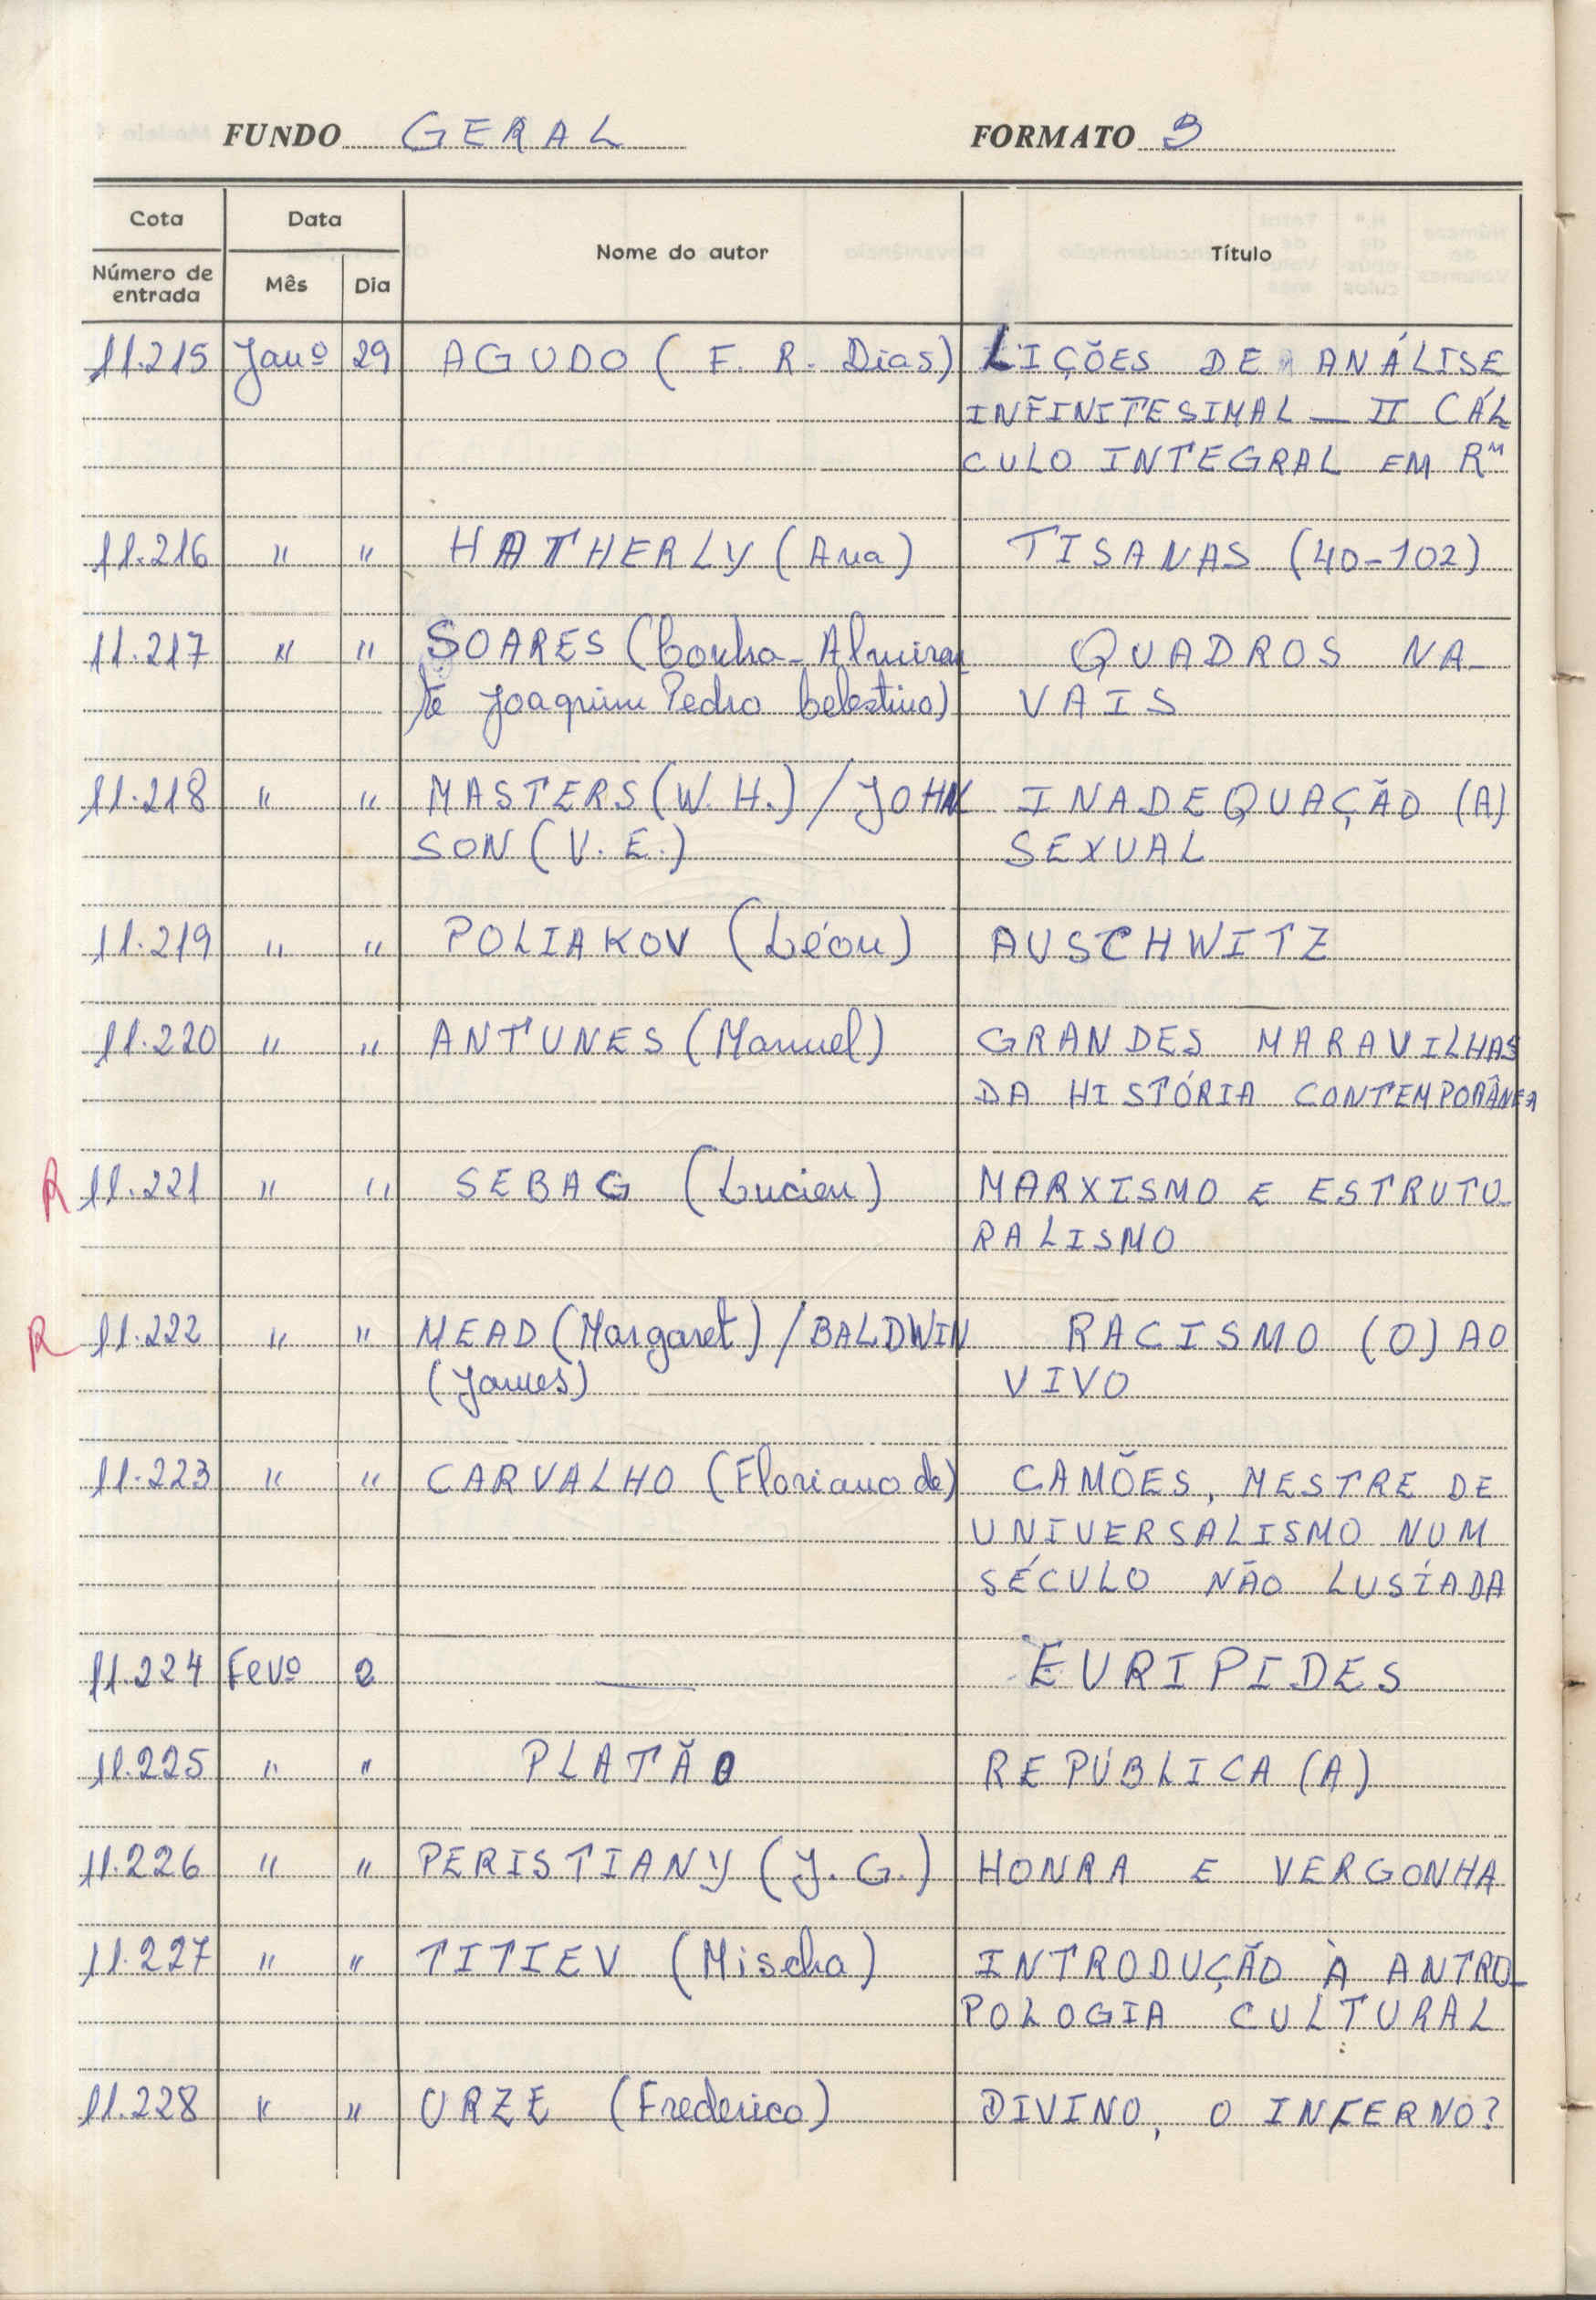 FUNDO GERAL FORMATO 3
Cota Data Nome do autor Título
Número de entrada Mês Dia
11.215 Janº 29 AGUDO (F. R. Dias) LIÇÕES DE ANÁLISE
INFINITESIMAL — II CÁL
CULO INTEGRAL EM Rᴹ
11.216 " " HATHERLY (Ana) TISANAS (40-102)
11.217 " " SOARES (Counha-Almiran QUADROS NA-
te Joaquim Pedro Celestino) VAIS
11.218 " " MASTERS (W. H.) / JOHN INADEQUAÇÃO (A)
SON (V. E.) SEXUAL
11.219 " " POLIAKOV (Léon) AUSCHWITZ
11.220 " " ANTUNES (Manuel) GRANDES MARAVILHAS
DA HISTÓRIA CONTEMPORÂNEA
R 11.221 " " SEBAG (Lucien) MARXISMO E ESTRUTU
RALISMO
R 11.222 " " MEAD (Margaret) / BALDWIN RACISMO (O) AO
(James) VIVO
11.223 " " CARVALHO (Floriano de) CAMÕES, MESTRE DE
UNIVERSALISMO NUM
SÉCULO NÃO LUSÍADA
11.224 Fevº 2 — EURIPIDES
11.225 " " PLATÃO REPÚBLICA (A)
11.226 " " PERISTIANY (J. G.) HONRA E VERGONHA
11.227 " " TITIEV (Mischa) INTRODUÇÃO À ANTRO-
POLOGIA CULTURAL
11.228 " " URZE (Frederico) DIVINO, O INFERNO?